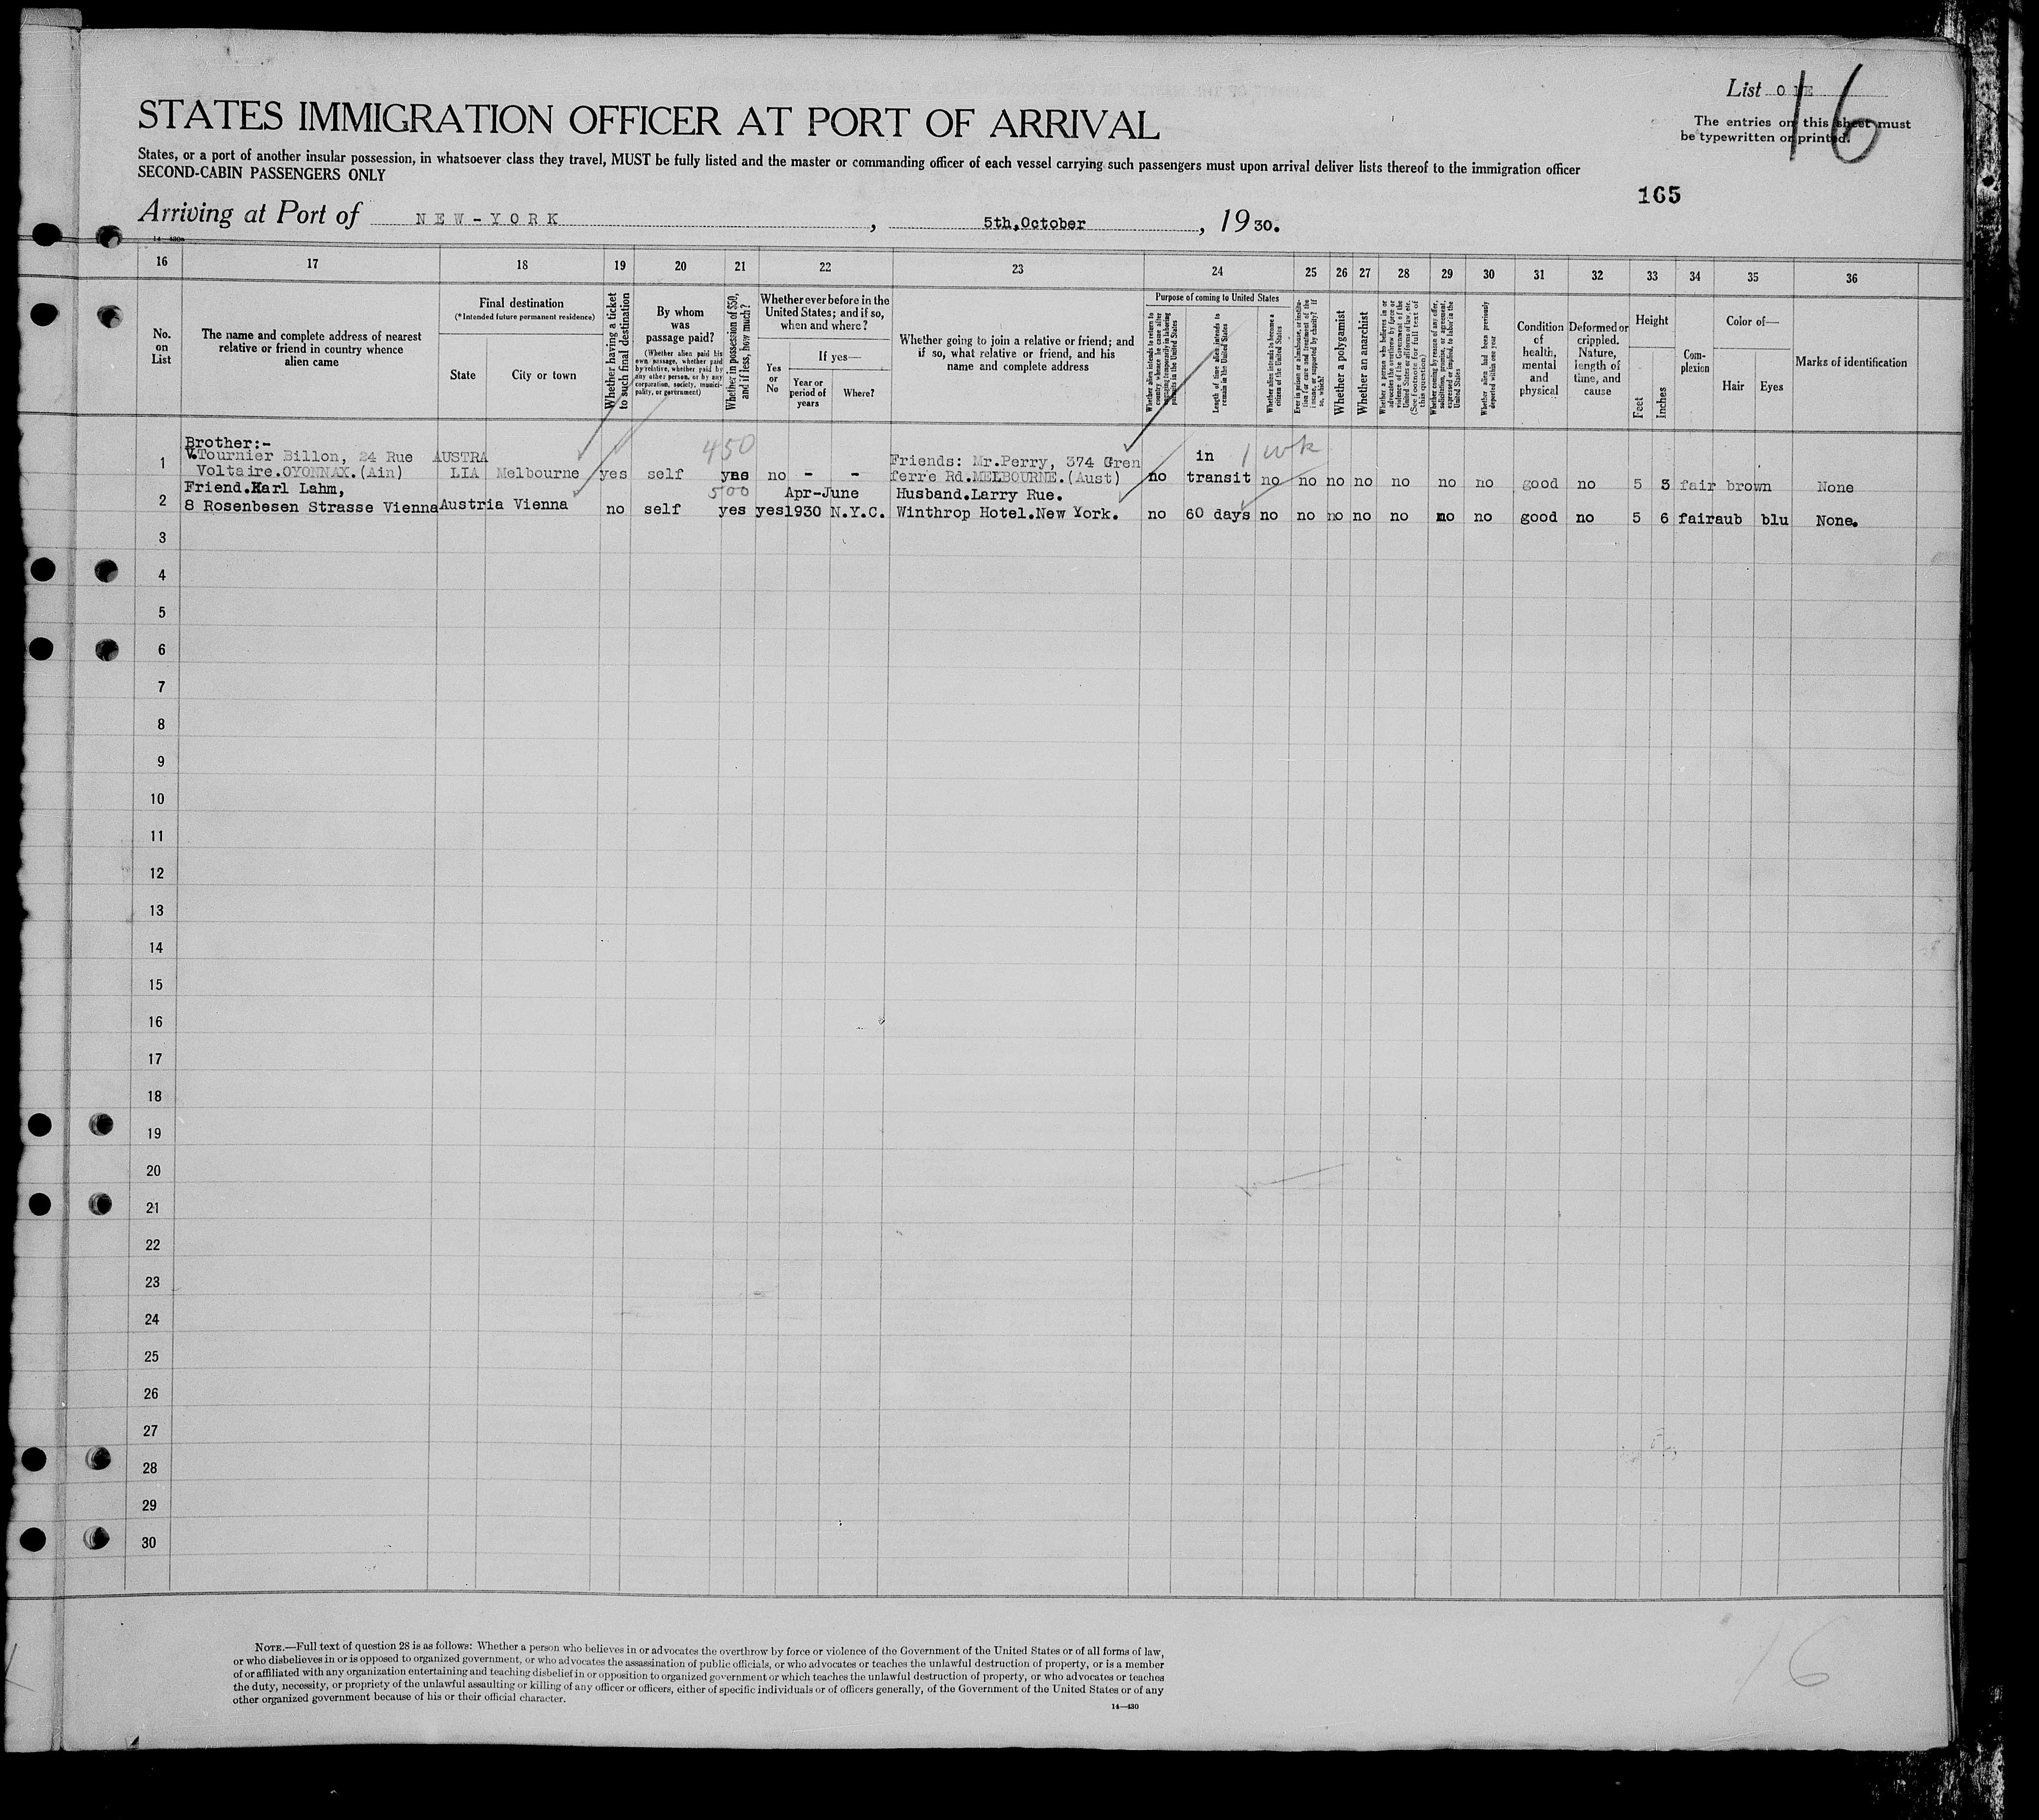 List ONE
16
The entries on this sheet must
be typewritten or printed.
STATES IMMIGRATION OFFICER AT PORT OF ARRIVAL
States, or a port of another insular possession, in whatsoever class they travel, MUST be fully listed and the master or commanding officer of each vessel carrying such passengers must upon arrival deliver lists thereof to the immigration officer
SECOND-CABIN PASSENGERS ONLY
165
Arriving at Port of NEW-YORK, 5th,October, 1930.
16 17 18 19 20 21 22 23 24 25 26 27 28 29 30 31 32 33 34 35 36
No. on List
The name and complete address of nearest relative or friend in country whence alien came
Final destination
(*Intended future permanent residence)
State
City or town
Whether having a ticket to such final destination
By whom was passage paid?
(Whether alien paid his own passage, whether paid by relative, whether paid by any other person, or by any corporation, society, municipality, or government)
Whether in possession of $50, and if less, how much?
Whether ever before in the United States; and if so, when and where?
Yes or No
If yes—
Year or period of years
Where?
Whether going to join a relative or friend; and if so, what relative or friend, and his name and complete address
Purpose of coming to United States
Whether alien intends to return to country whence he came after engaging temporarily in laboring pursuits in the United States
Length of time alien intends to remain in the United States
Whether alien intends to become a citizen of the United States
Ever in prison or almshouse, or institution for care and treatment of the insane, or supported by charity? If so, which?
Whether a polygamist
Whether an anarchist
Whether a person who believes in or advocates the overthrow by force or violence of the Government of the United States or all forms of law, etc. (See footnote for full text of this question)
Whether coming by reason of any offer, solicitation, promise, or agreement, expressed or implied, to labor in the United States
Whether alien had been previously deported within one year
Condition of health, mental and physical
Deformed or crippled. Nature, length of time, and cause
Height
Feet
Inches
Complexion
Color of—
Hair
Eyes
Marks of identification
Brother:-
450
1 V.Tournier Billon, 24 Rue AUSTRA Friends: Mr.Perry, 374 Gren in 1 wk
Voltaire.OYONNAX.(Ain) LIA Melbourne yes self yes no - - ferre Rd.MELBOURNE.(Aust) no transit no no no no no no no good no 5 3 fair brown None
500
2 Friend.Karl Lahm, Apr-June Husband.Larry Rue.
8 Rosenbesen Strasse Vienna Austria Vienna no self yes yes 1930 N.Y.C. Winthrop Hotel.New York. no 60 days no no no no no no no good no 5 6 fair aub blu None.
3
4
5
6
7
8
9
10
11
12
13
14
15
16
17
18
19
20
21
22
23
24
25
26
27
28
29
30
NOTE.—Full text of question 28 is as follows: Whether a person who believes in or advocates the overthrow by force or violence of the Government of the United States or of all forms of law,
or who disbelieves in or is opposed to organized government, or who advocates the assassination of public officials, or who advocates or teaches the unlawful destruction of property, or is a member
of or affiliated with any organization entertaining and teaching disbelief in or opposition to organized government or which teaches the unlawful destruction of property, or who advocates or teaches
the duty, necessity, or propriety of the unlawful assaulting or killing of any officer or officers, either of specific individuals or of officers generally, of the Government of the United States or of any
other organized government because of his or their official character.
14—430
16